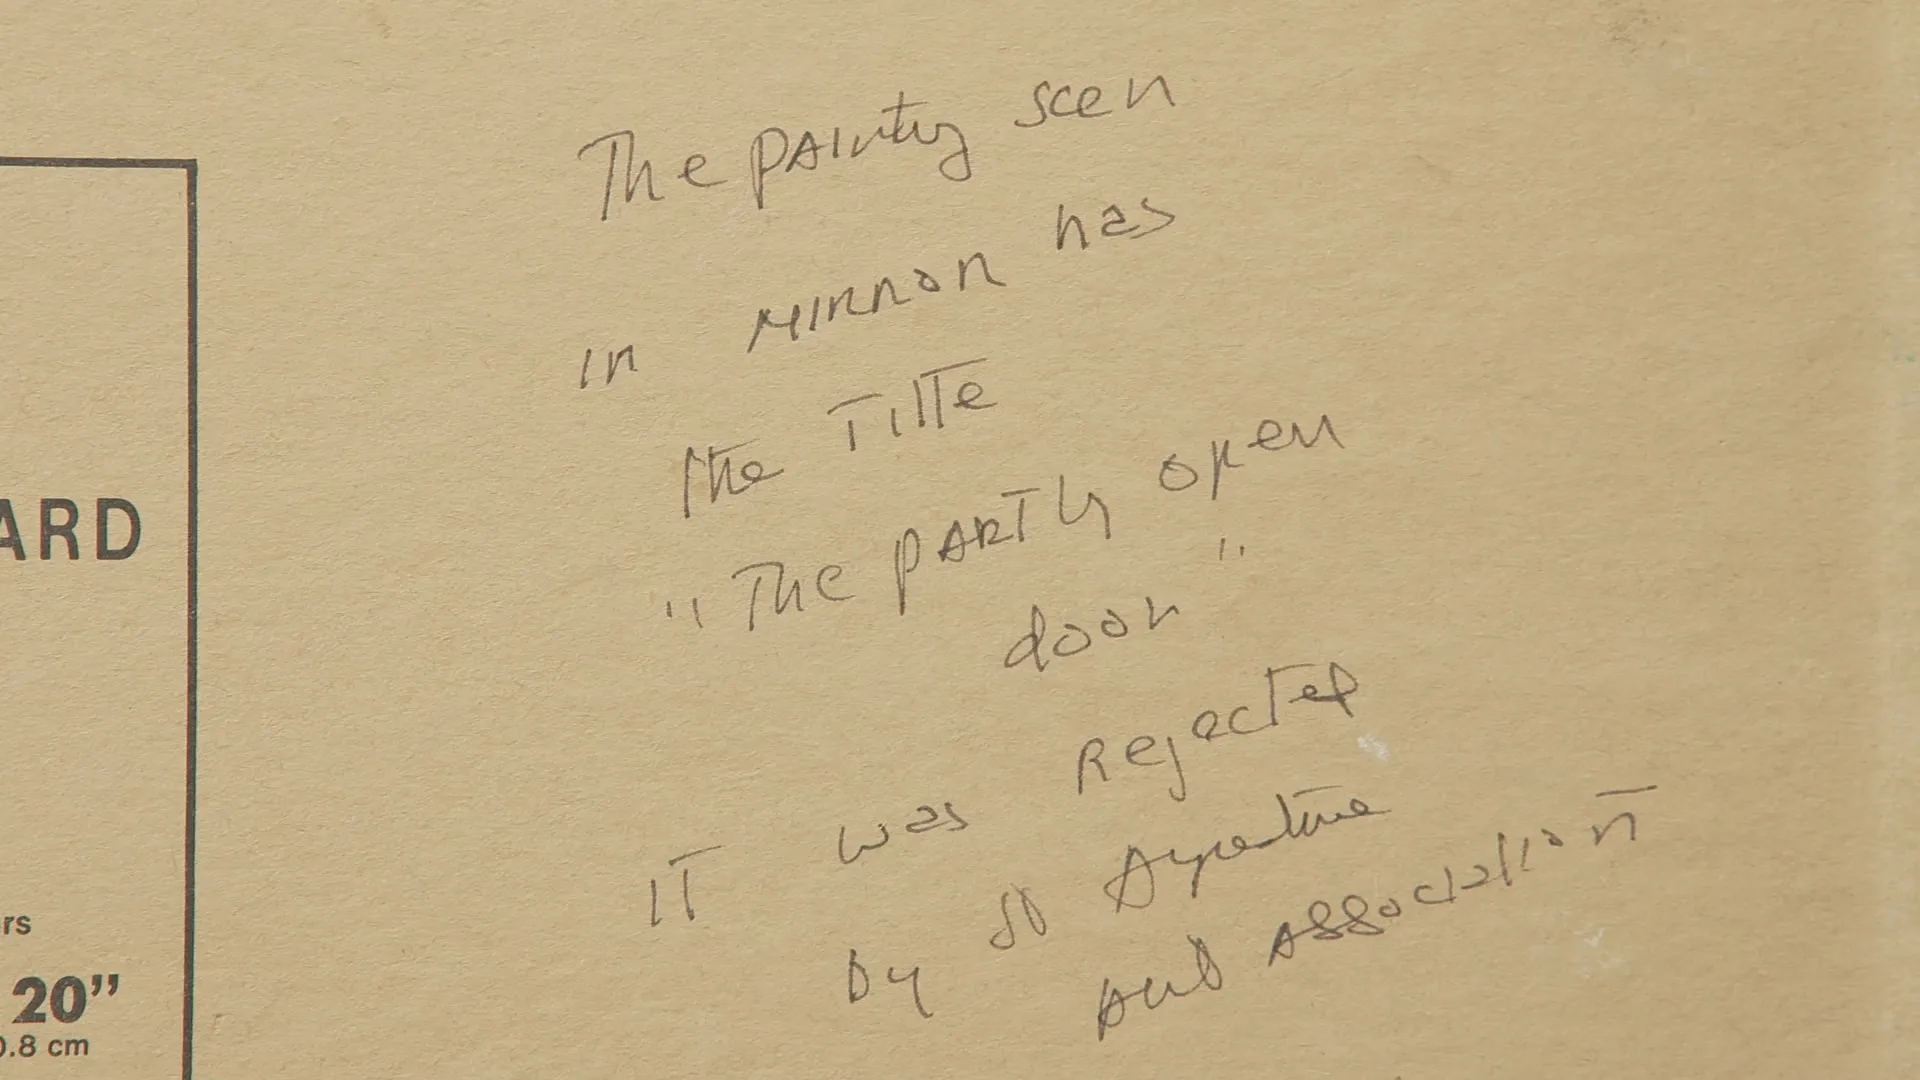 The PAINTING seen
in MIRROR has
the TITLE
"The PARTLY open
door"
IT was Rejected
by
ASSOCIATION
ARD
rs
20"
0.8 cm